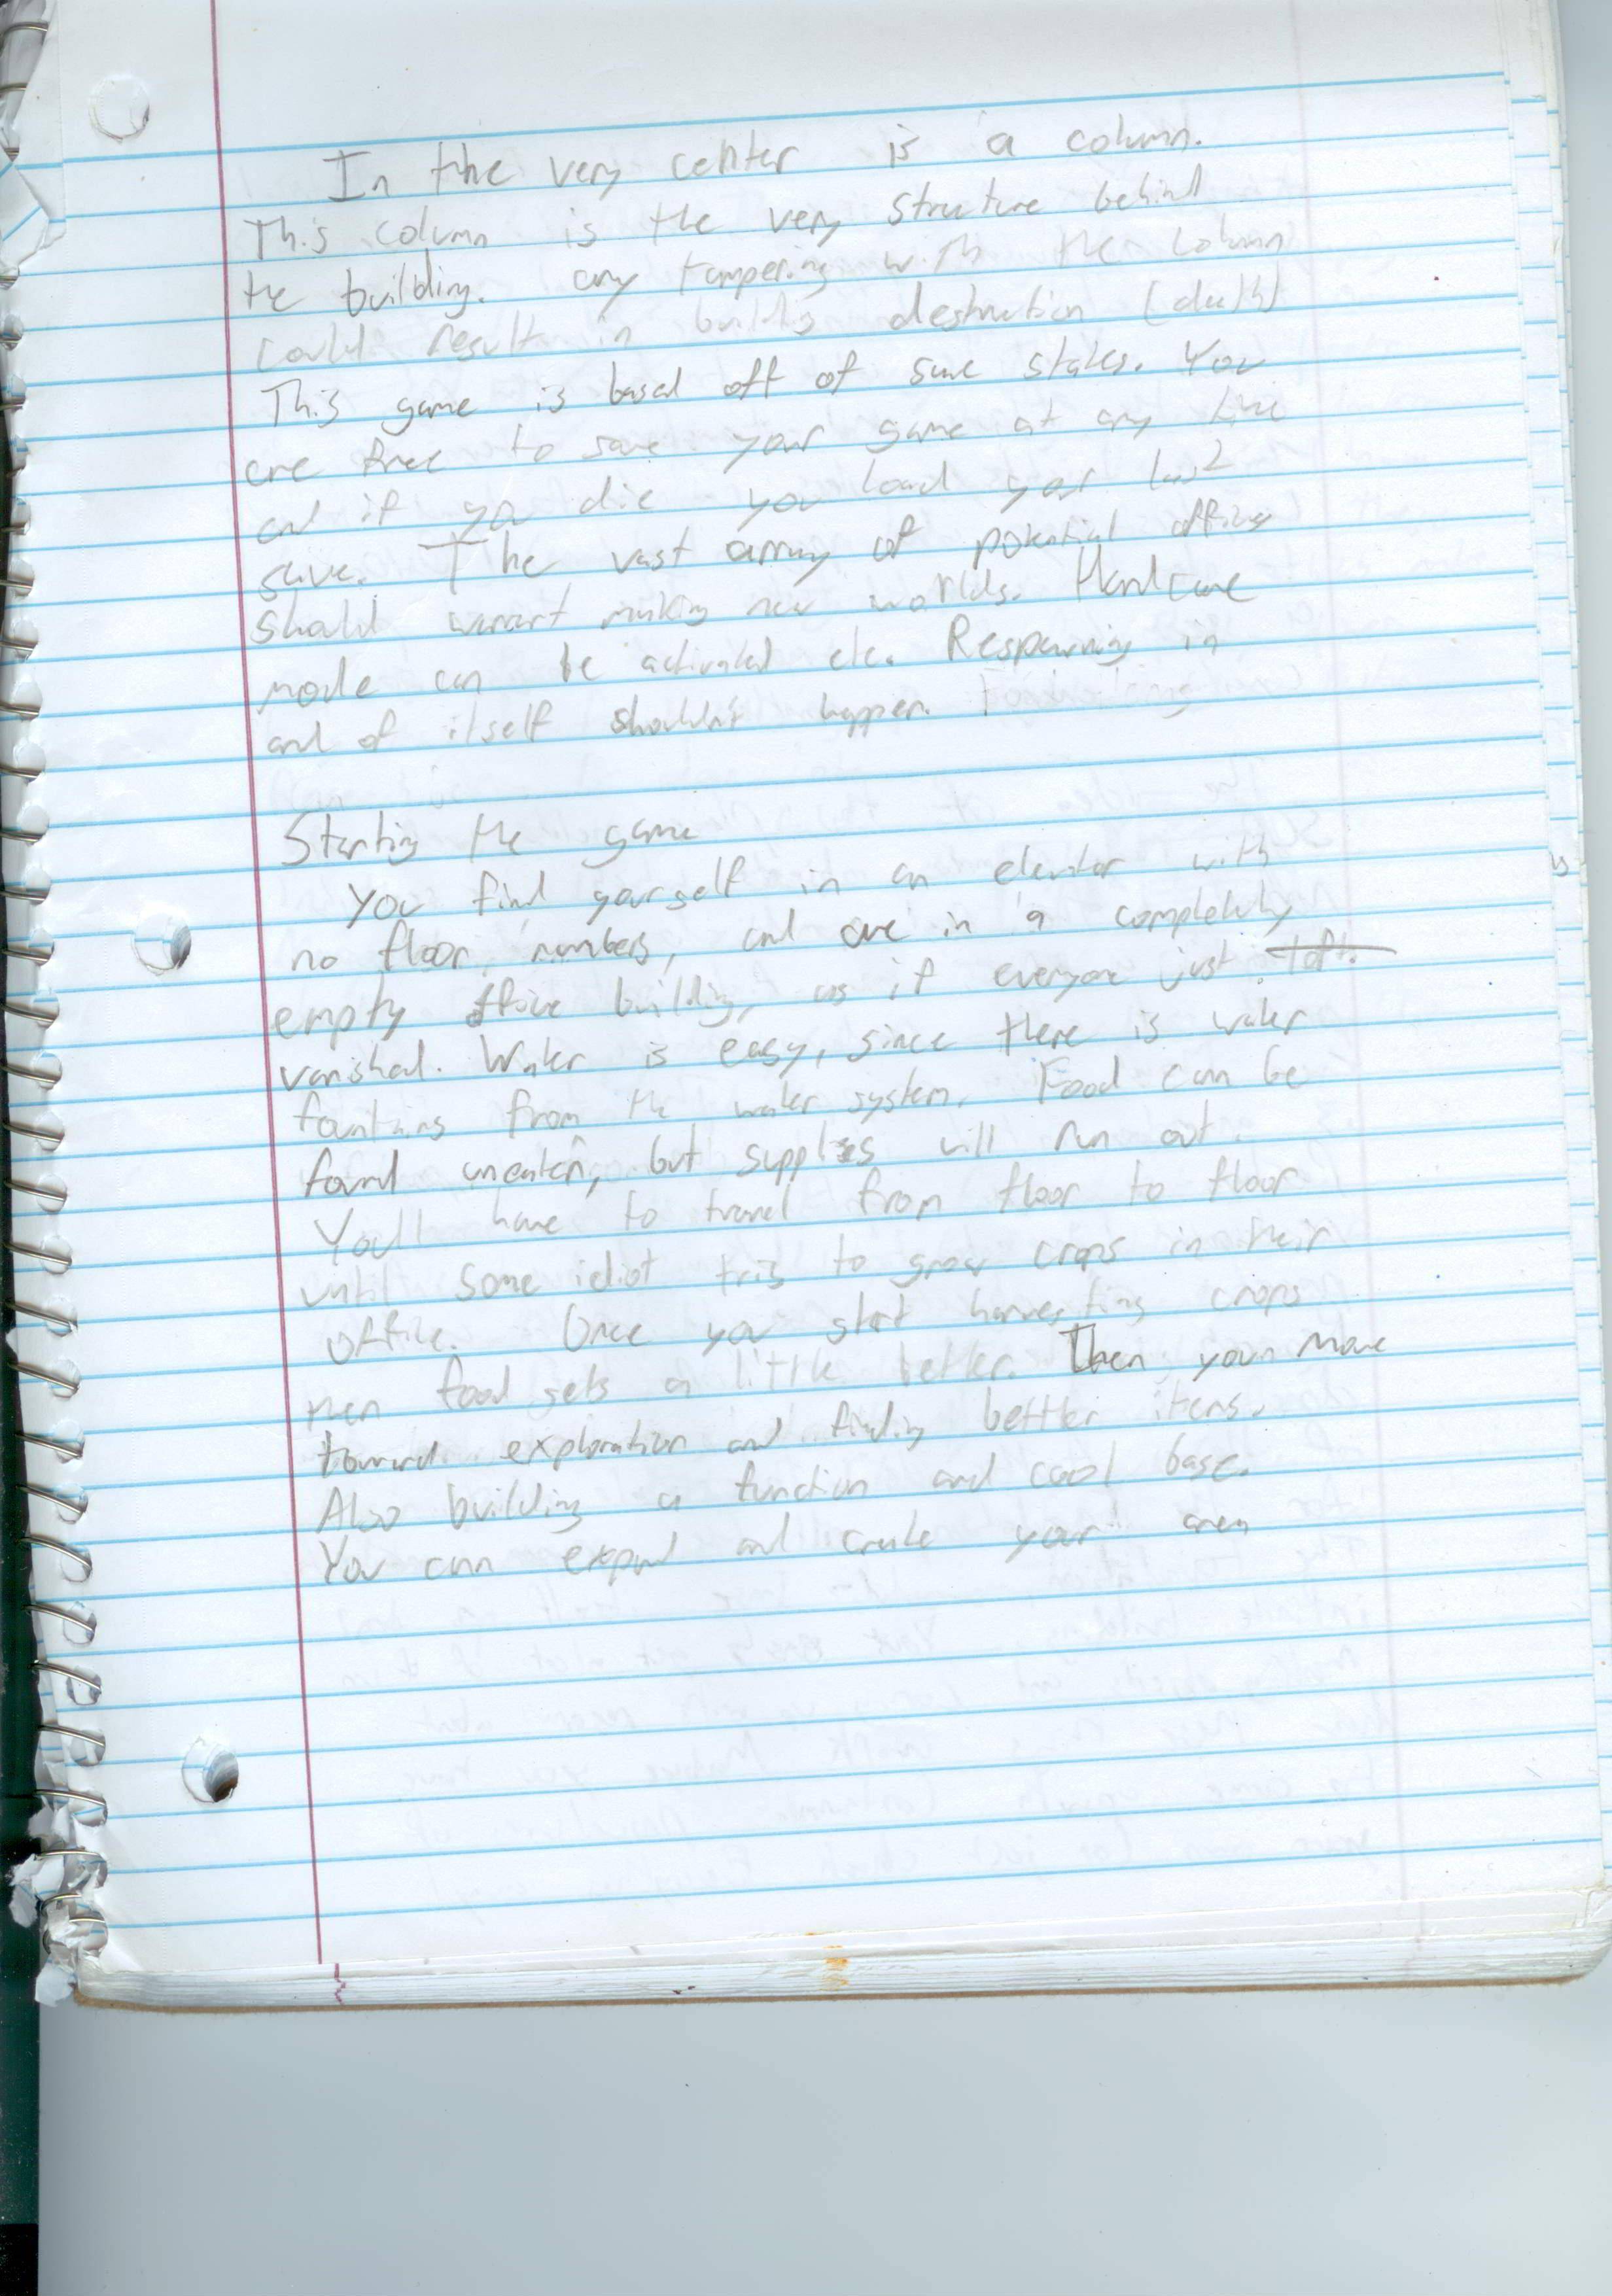 In the very center is a column.
This column is the very structure behind
the building. any tampering with the column
could result in building destruction (death)
This game is based off of save states. You
are free to save your game at any time
and if you die you load your last
save. The vast array of potential offices
should warrant making new worlds. Hardcore
mode can be activated etc. Respawning in
and of itself shouldn't happen.
Starting the game
You find yourself in an elevator with
no floor numbers, and are in a completely
empty office building, as if everyone just
vanished. Water is easy, since there is water
fountains from the water system. Food can be
found uneaten, but supplies will run out.
You'll have to travel from floor to floor
until some idiot tris to grow crops in their
office. Once you start harvesting crops
then food gets a little better. Then your move
toward exploration and finding bettter items.
Also building a function and cool base.
You can expand and create your area